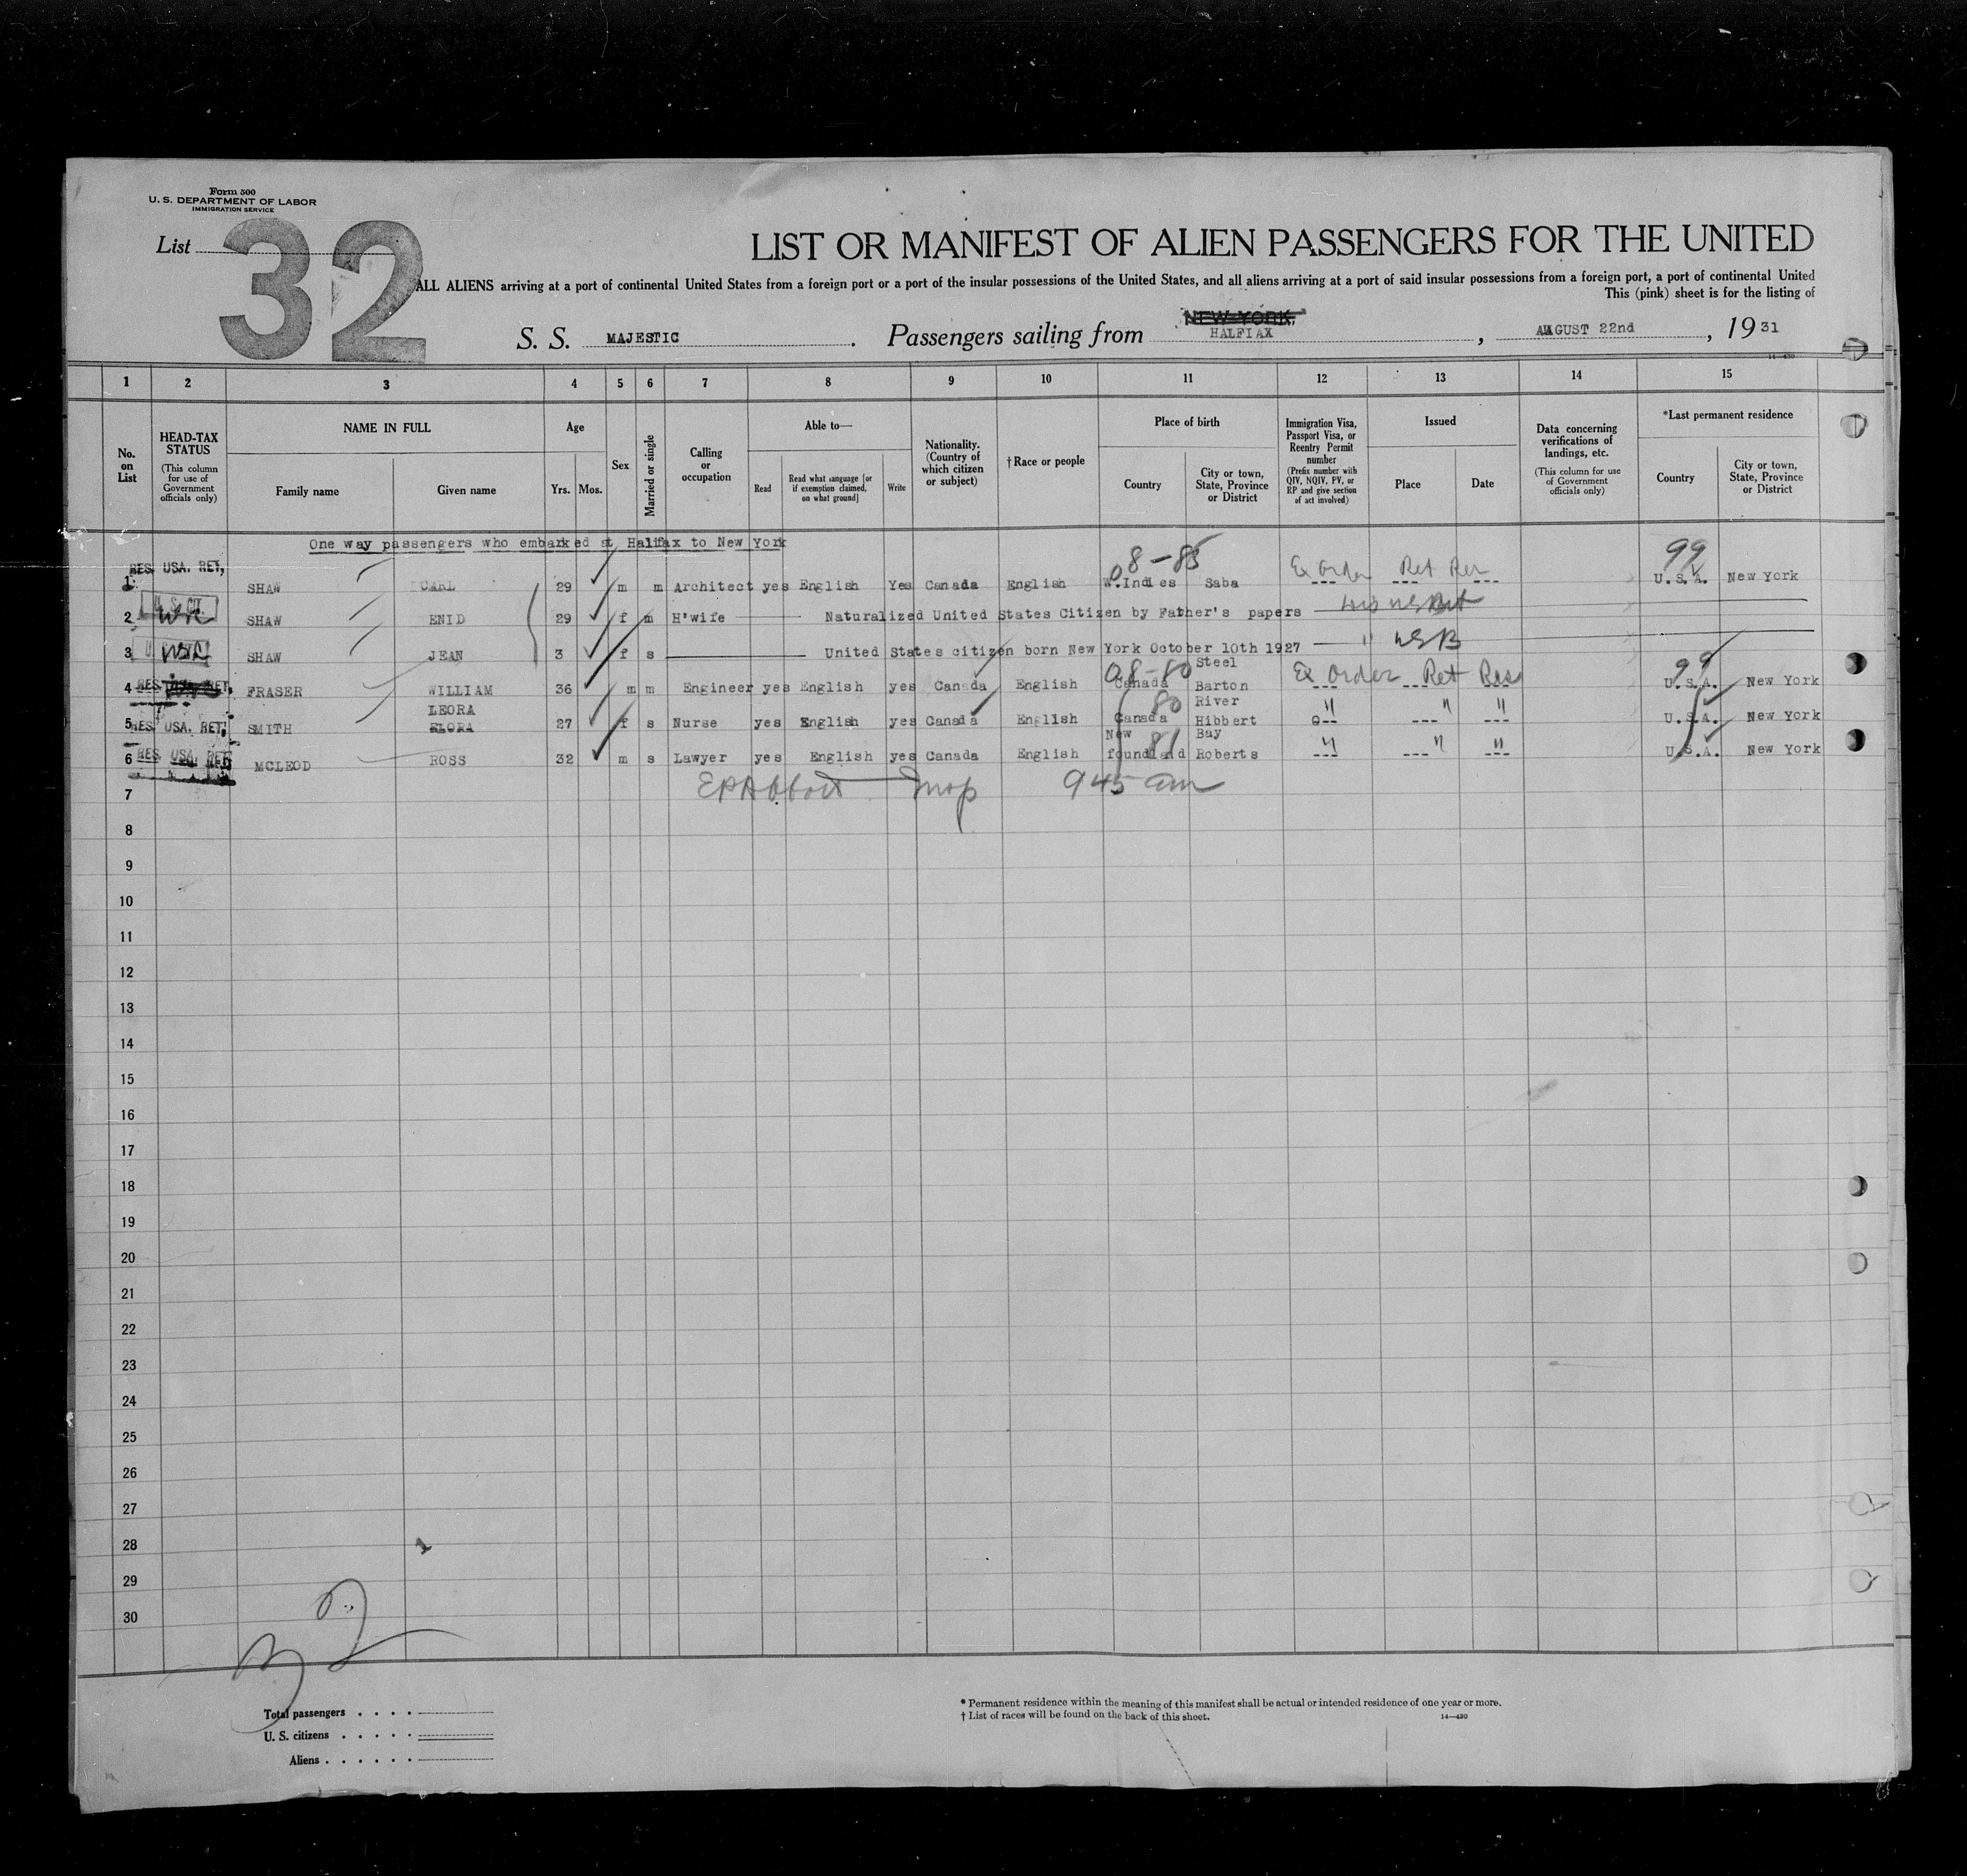 Form 500
U. S. DEPARTMENT OF LABOR
IMMIGRATION SERVICE
List 32
LIST OR MANIFEST OF ALIEN PASSENGERS FOR THE UNITED
ALL ALIENS arriving at a port of continental United States from a foreign port or a port of the insular possessions of the United States, and all aliens arriving at a port of said insular possessions from a foreign port, a port of continental United
This (pink) sheet is for the listing of
NEW YORK,
S. S. MAJESTIC. Passengers sailing from HALFIAX, AUGUST 22nd, 1931
14—430
1 2 3 4 5 6 7 8 9 10 11 12 13 14 15
No. on List
HEAD-TAX STATUS
(This column for use of Government officials only)
NAME IN FULL
Family name
Given name
Age
Yrs. Mos.
Sex
Married or single
Calling or occupation
Able to—
Read
Read what language [or if exemption claimed, on what ground]
Write
Nationality. (Country of which citizen or subject)
†Race or people
Place of birth
Country
City or town, State, Province or District
Immigration Visa, Passport Visa, or Reentry Permit number
(Prefix number with QIV, NQIV, PV, or RP and give section of act involved)
Issued
Place
Date
Data concerning verifications of landings, etc.
(This column for use of Government officials only)
*Last permanent residence
Country
City or town, State, Province or District
One way passengers who embarked at Halifax to New York
8-85 99
RES. USA. RET,
1 SHAW CARL 29 m m Architect yes English Yes Canada English W.Indies Saba Ex Order --- Ret --- U.S.A. New York
2 SHAW ENID 29 f m H'wife Naturalized United States Citizen by Father's papers
3 SHAW JEAN 3 f s United States citizen born New York October 10th 1927 "
08-80 Steel 99
4 RES. FRASER WILLIAM 36 m m Engineer yes English yes Canada English Canada Barton Ex Order --- Ret --- U.S.A. New York
LEORA 80 River
5 RES. USA. RET, SMITH ELORA 27 f s Nurse yes English yes Canada English Canada Hibbert " --- " --- " --- U.S.A. New York
New 81 Bay
6 RES. USA. RET, MCLEOD ROSS 32 m s Lawyer yes English yes Canada English foundland Roberts " --- " --- " --- U.S.A. New York
7 EP Abbott Insp 945 am
8
9
10
11
12
13
14
15
16
17
18
19
20
21
22
23
24
25
26
27
28
29
30
Total passengers . . . .
U. S. citizens . . . . .
Aliens . . . . . .
* Permanent residence within the meaning of this manifest shall be actual or intended residence of one year or more.
† List of races will be found on the back of this sheet.
14—430